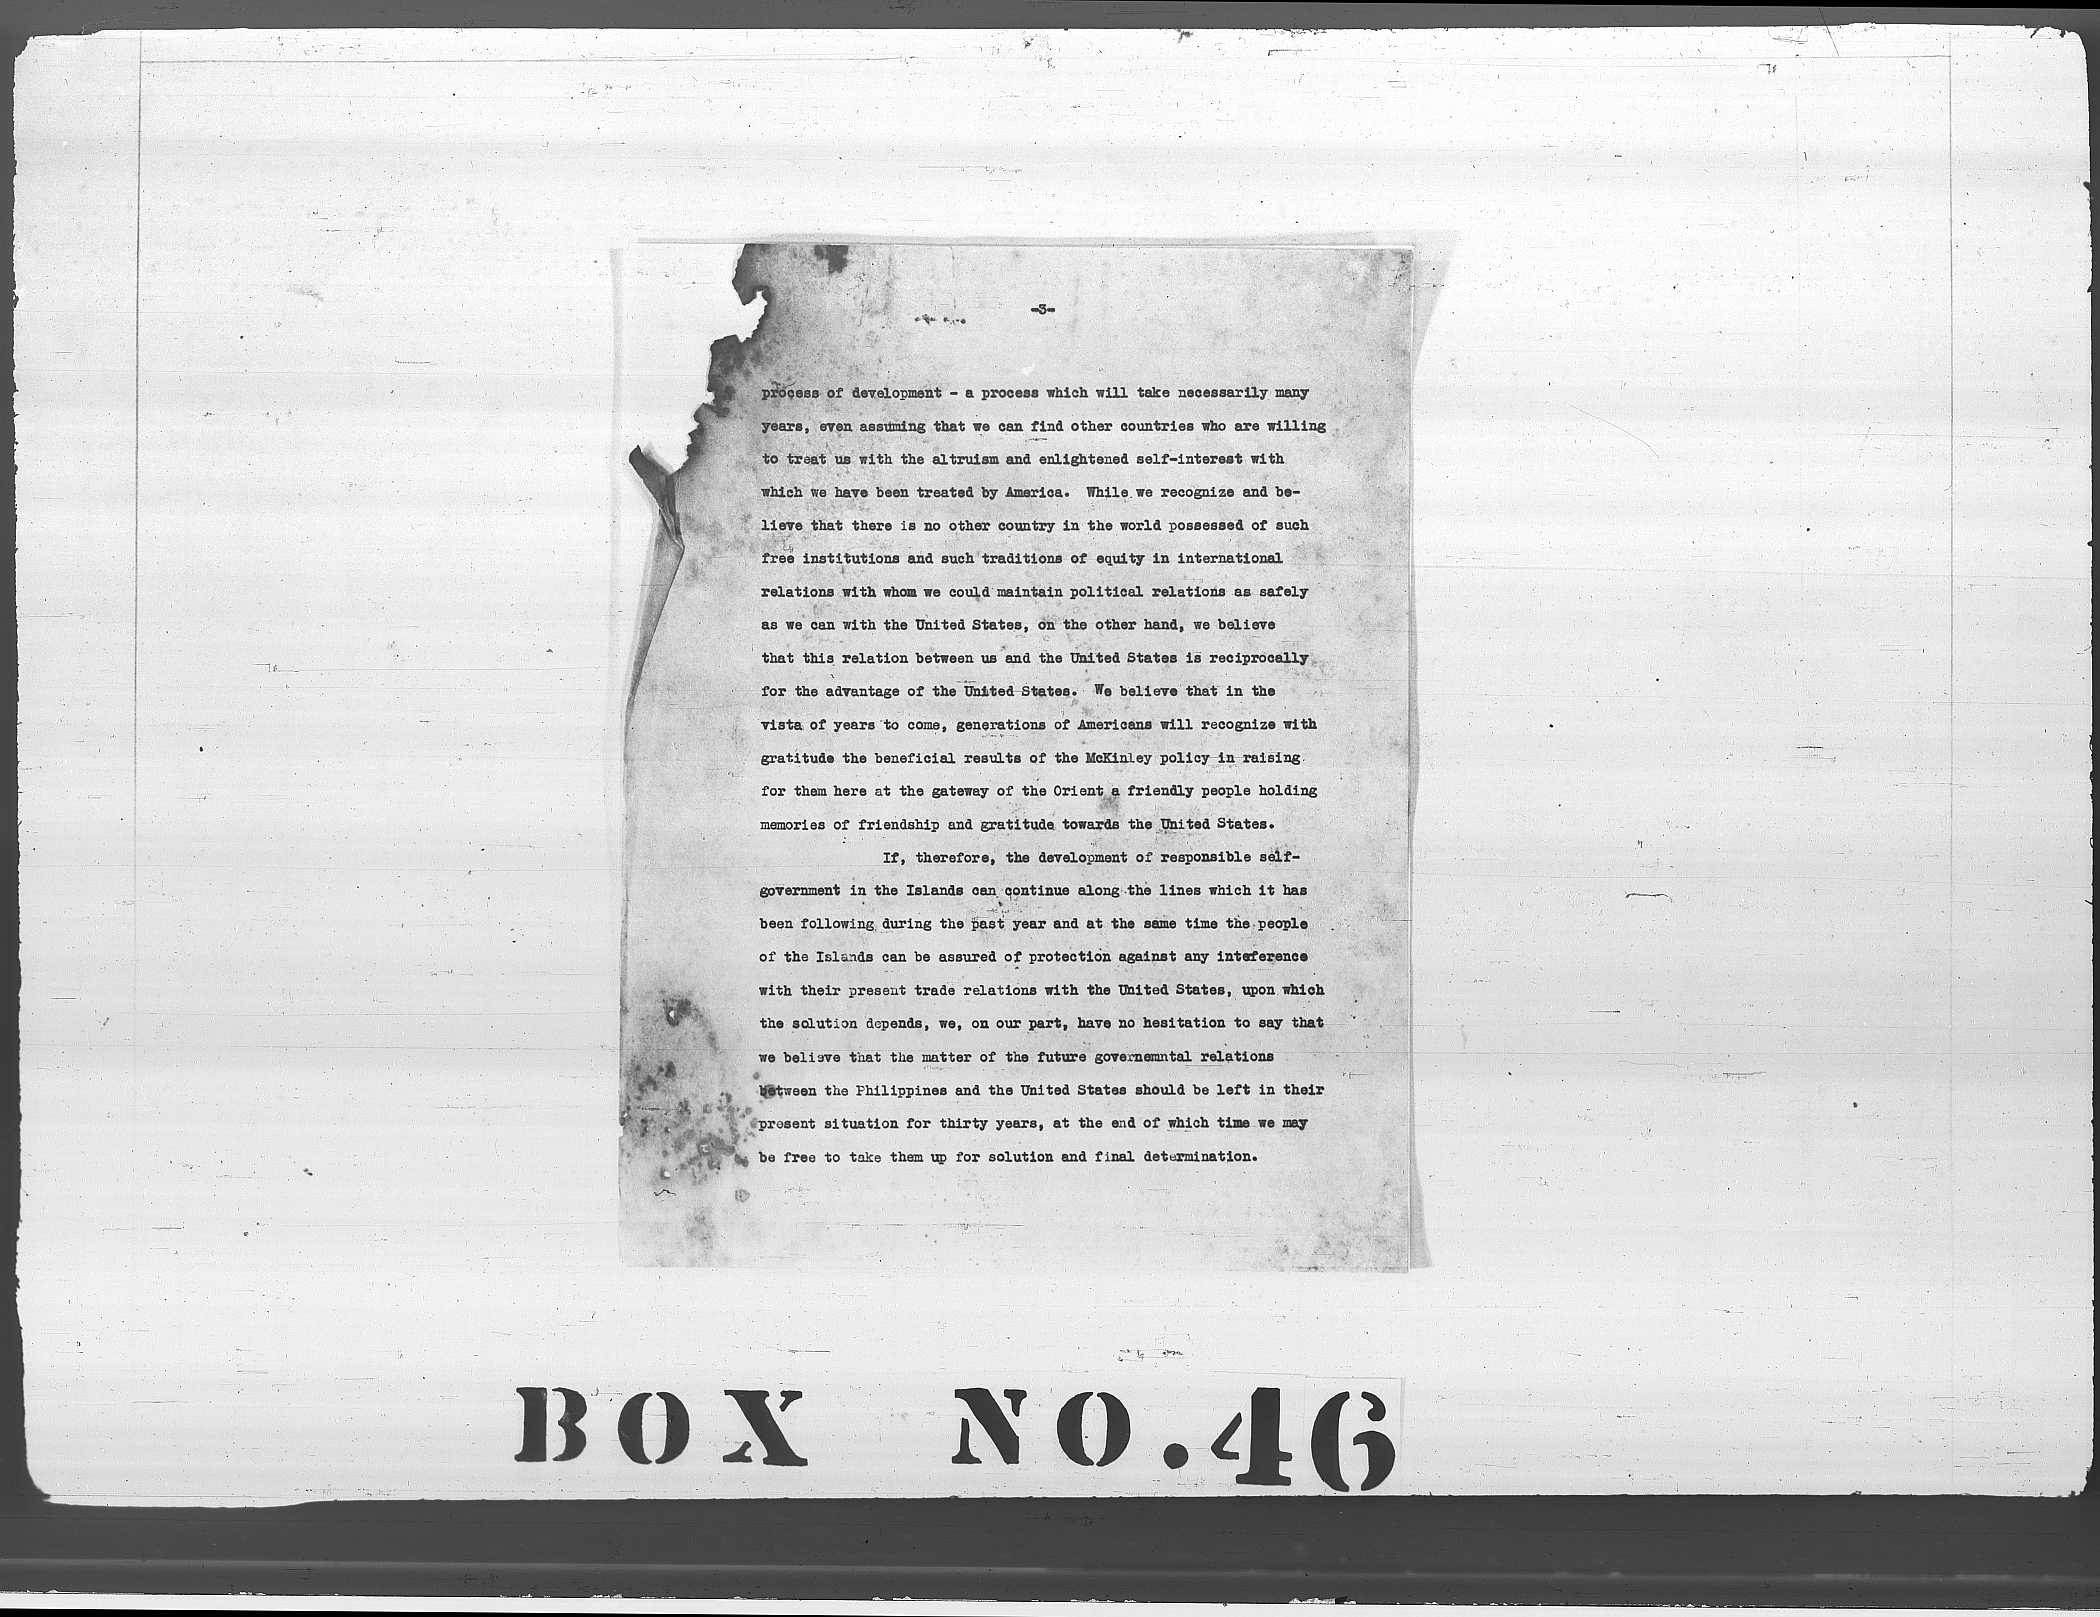 -3-
process of development - a process which will take necessarily many
years, even assuming that we can find other countries who are willing
to treat us with the altruism and enlightened self-interest with
which we have been treated by America.  While we recognize and be-
lieve that there is no other country in the world possessed of such
free institutions and such traditions of equity in international
relations with whom we could maintain political relations as safely
as we can with the United States, on the other hand, we believe
that this relation between us and the United States is reciprocally
for the advantage of the United States.  We believe that in the
vista of years to come, generations of Americans will recognize with
gratitude the beneficial results of the McKinley policy in raising
for them here at the gateway of the Orient a friendly people holding
memories of friendship and gratitude towards the United States.
If, therefore, the development of responsible self-
government in the Islands can continue along the lines which it has
been following during the past year and at the same time the people
of the Islands can be assured of protection against any inteference
with their present trade relations with the United States, upon which
the solution depends, we, on our part, have no hesitation to say that
we believe that the matter of the future governemntal relations
between the Philippines and the United States should be left in their
present situation for thirty years, at the end of which time we may
be free to take them up for solution and final determination.
BOX NO.46